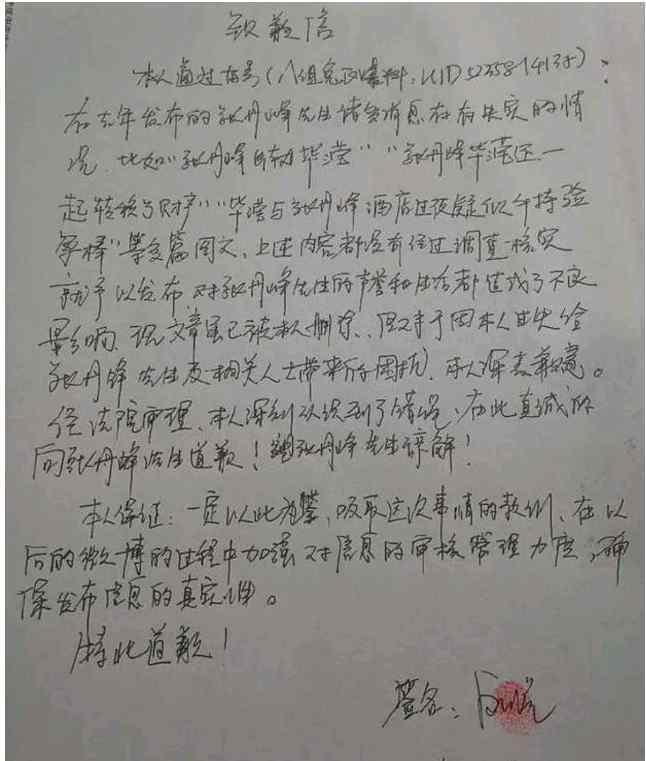 致歉信
本人通过ber号(八组兔区爆料,UID5235814135):
在去年发布的张丹峰先生诸多消息存有失实的情
况,比如"张丹峰出轨毕滢""张丹峰毕滢还一
起转移了财产""毕滢与张丹峰酒店过夜疑似
"等多篇图文,上述内容都没有经过调查核实
就予以发布,对张丹峰先生的声誉和生活都造成了不良
影响,现文章虽已被本人删除,但对于因本人过失给
张丹峰先生及相关人士带来的困扰,本人深表歉意。
经法院审理,本人深刻认识到了错误,在此真诚的
向张丹峰先生道歉!望张丹峰先生谅解!
本人保证:一定以此为鉴,吸取这次事情的教训,在以
后的微博的过程中加强对信息的审核管理力度,确
保发布信息的真实性。
特此道歉!
签名: